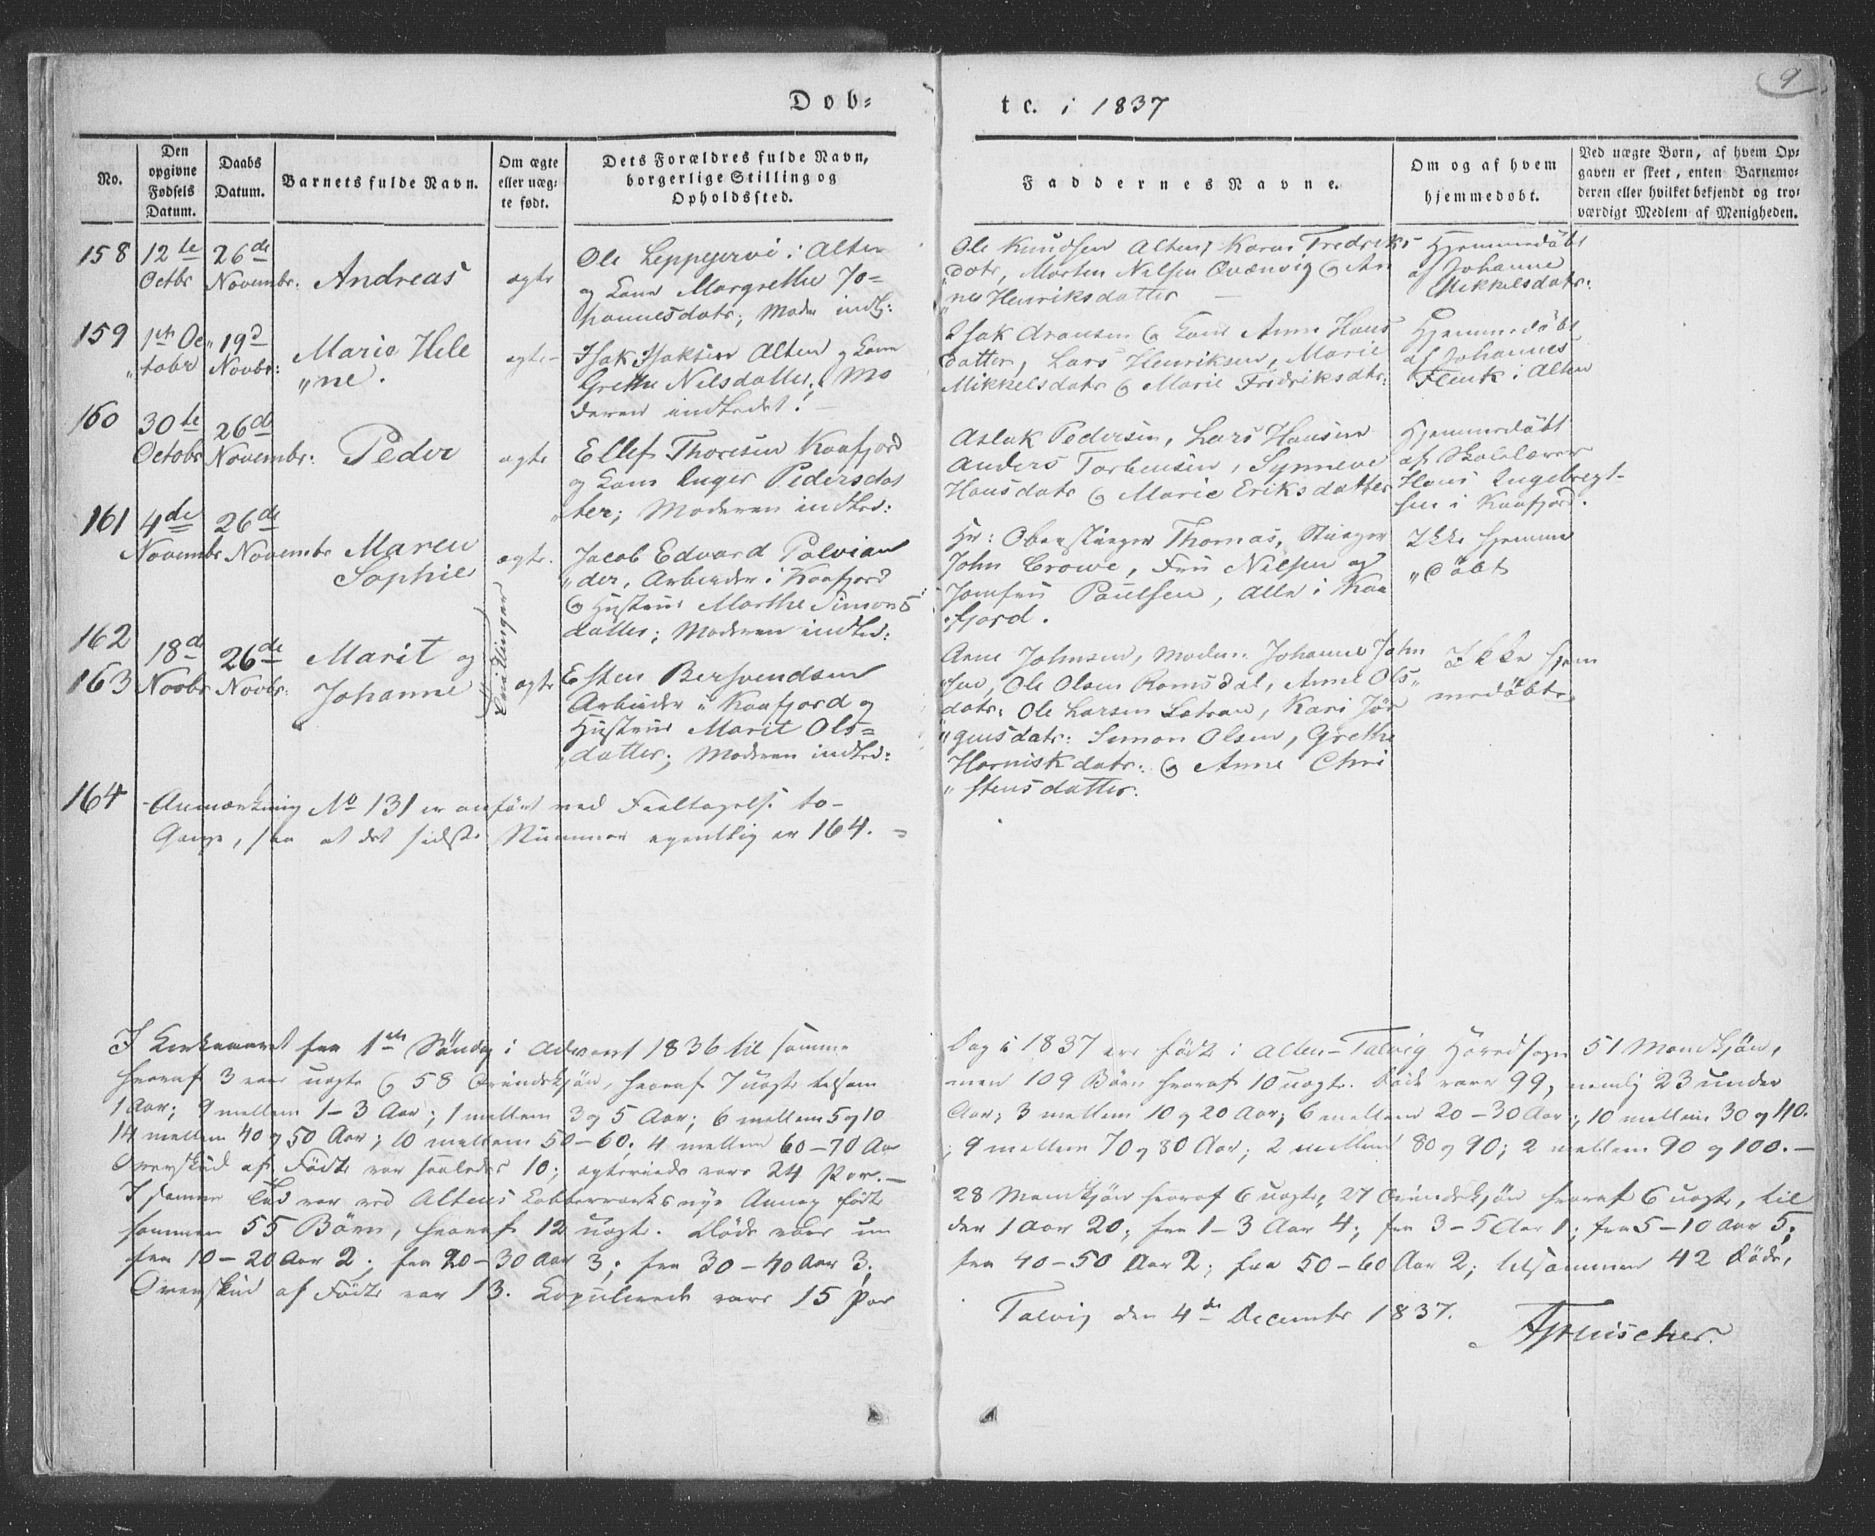 9
Dob=
te. i 1837
No.
Den opgivne Fødsels Datum.
Daabs Datum.
Barnets fulde Navn.
Om ægte eller uæg= te født.
Dets Forældres fulde Navn, borgerlige Stilling og Opholdssted.
Faddernes Navne.
Om og af hvem hjemmedøbt.
Ved uægte Børn, af hvem Op= gaven er skeet, enten Barnemo= deren eller hvilket bekjendt og tro= værdigt Medlem af Menigheden.
158
12te Octbr
26de Novembr.
Andreas
ægte
Ole Leppejervi i Alten
og Kone Margrethe Jo=
hannesdatr; Moder indl:
Ole Knudsen Alten, Karen Fredriks
datr, Morten Nilsen Qvænvig & An
ne Henriksdatter
Hjemmedøbt
af Johanne
Mikkelsdatr:
159
1ste Oc
tobr
19d
Novbr:
Marie Hele
"ne.
ægte
Isak Isaksen Alten og Kone
Grethe Nilsdatter, Mo
deren indledet!
Isak Aronsen & Kone Anne Hans
datter, Lars Henriksen, Marie
Mikkelsdatr & Marie Fredriksdtr:
Hjemmedøbt
af Johannes
Flenk i Alten
160
30te
Octobr
26de
Novembr:
Peder
ægte
Ellef Thoresen Kaafjord
og Kone Inger Pedersdat
"ter; Moderen indled:
Aslak Pedersen, Lars Hansen
Anders Torbensen, Synneve
Hansdatr & Marie Eriksdatter
Hjemmedøbt
af Skolelærer
Hans Ingebregt-
sen i Kaafjord.
161
4de
Novembr
26de
Novembr
Maren
Sophie
ægte.
Jacob Edvard
"der, Arbeider i Kaafjord
& Hustrue Marthe Simons
datter; Moderen indled:
Hr: Oberstiger Thomas, Stiger
John Crowe, Fru Nilsen og
Jomfru Paulsen, alle i Kaa
fjord.
Ikke hjemme
"døbt
162
163
18d
Novbr
26de
Novbr:
Marit og
Johanne
Tvillinger
ægte
Esten Bersvendsen
Arbeider i Kaafjord og
Hustrue Marit Ols=
datter; Moderen indled:
Arne Johnsen, Moder. Johanne John
sen, Ole Olsen Romsdal, Anne Ols"
datr: Ole Larsen Lætran, Kari Jør
"gensdatr: Simon Olsen, Grethe
Horniskdatr. & Anne Chri
"stensdatter.
Ikke hjem
medøbte
164
Anmærkning No 131 er anført ved Feiltagelse to-
Gange, saa at det sidste Nummer egentlig er 164.
I Kirkeaaret fra 1ste Søndag i Advent 1836 til samme
Dag i 1837 ere født i Alten-Talvig Hovedsogn 51 Mandkjøn,
hvoraf 3 vare uægte & 58 Qvindekjøn, hvoraf 7 uægte tilsam
men 109 Børn hvoraf 10 uægte. Døde vare 99, nemlig 23 under
1 Aar; 9 mellem 1-3 Aar; 1 mellem 3 og 5 Aar; 6 mellem 5 og 10
Aar; 3 mellem 10 og 20 Aar; 6 mellem 20-30 Aar; 10 mellem 30 og 40.
14 mellem 40 og 50 Aar; 10 mellem 50-60; 4 mellem 60-70 Aar
; 9 mellem 70 og 80 Aar; 2 mellem 80 og 90; 2 mellem 90 og 100.-
Overskud af Fødte var saaledes 10; ægteviede vare 24 Par.-
I samme Tid var ved Altens Kobberværks nye Annex fødte
28 Mandkjøn hvoraf 6 uægte, 27 Qvindekjøn hvoraf 6 uægte, til
sammen 55 Børn, hvoraf 12 uægte. Døde vare un
der 1 Aar 20; fra 1-3 Aar 4; fra 3-5 Aar 1; fra 5-10 Aar 5;
fra 10-20 Aar 2; fra 20-30 Aar 3; fra 30-40 Aar 3;
fra 40-50 Aar 2; fra 50-60 Aar 2; tilsammen 42 døde,
Overskud af Fødte var 13. Copulerede vare 15 Par
Talvig den 4de Decembr 1837.